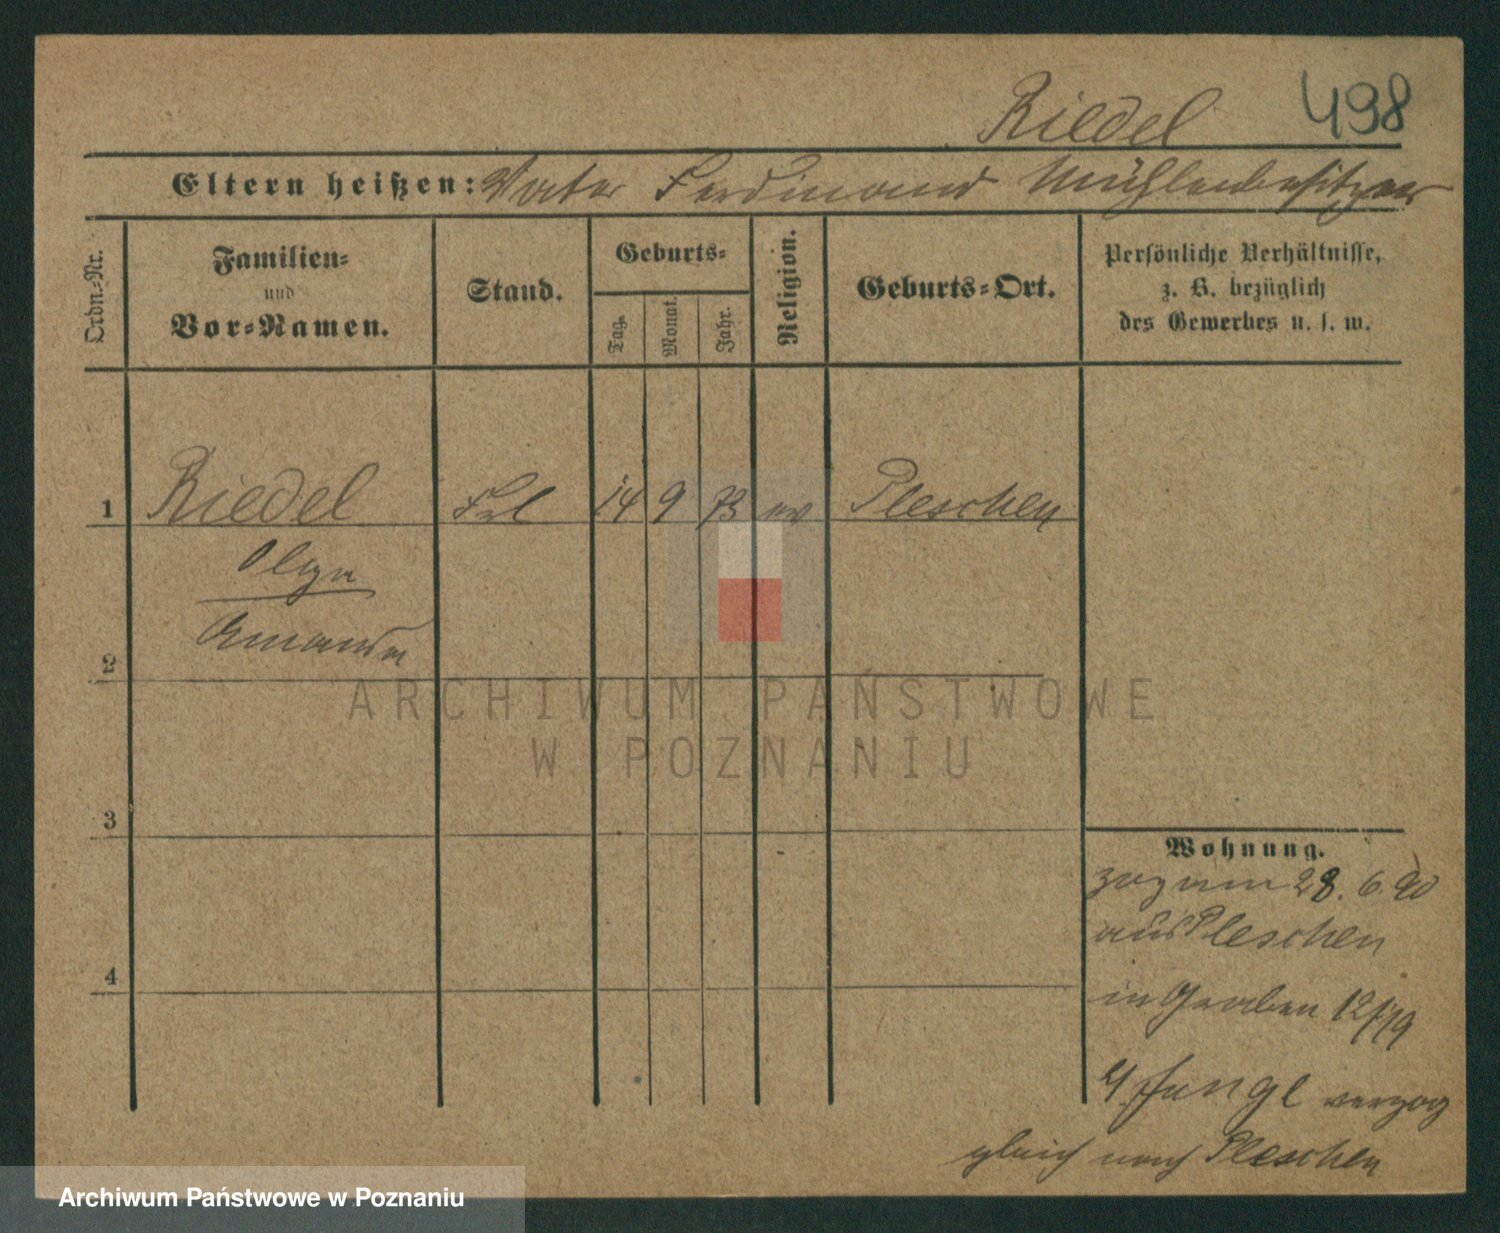 Riedel 498
Eltern heißen: Vater Ferdinand Mühlenbesitzer
Ordn.-Nr.
Familien-
und
Vor-Namen.
Stand.
Geburts-
Tag.
Monat.
Jahr.
Religion.
Geburts-Ort.
Persönliche Verhältnisse,
z. B. bezüglich
des Gewerbes u. s. w.
1 Riedel Frl 14 9 73 ev Pleschen
Olga
Amanda
2
3
4
Wohnung.
zog am 28. 6. 90
aus Pleschen
in Graben 12/19
verzog
gleich nach Pleschen
ARCHIWUM PAŃSTWOWE
W POZNANIU
Archiwum Państwowe w Poznaniu